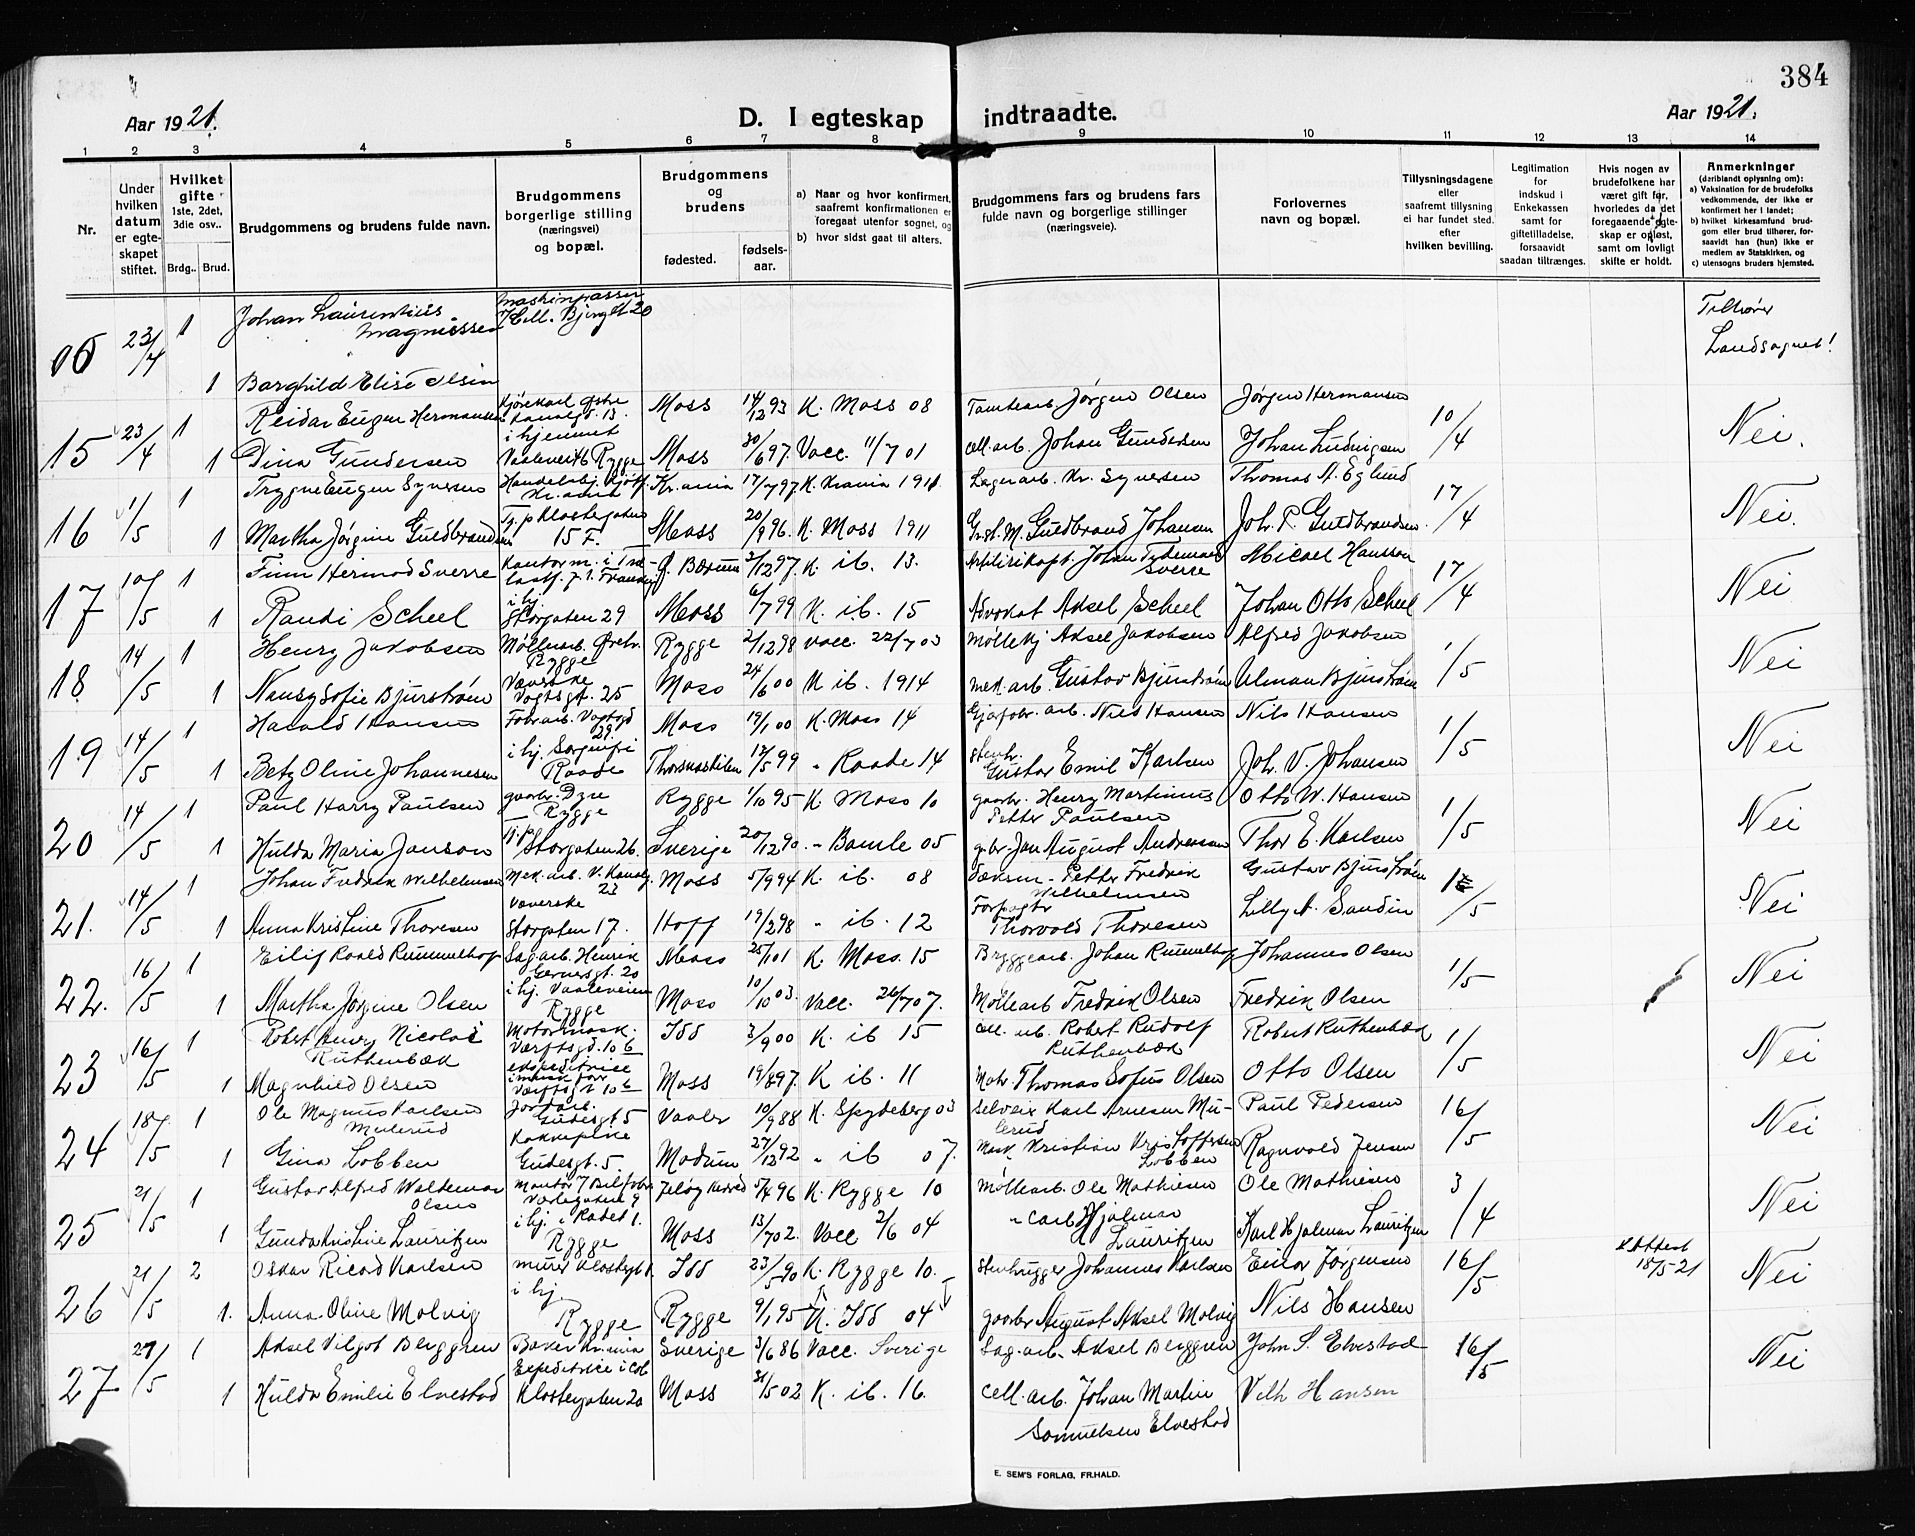 384
Aar 1921.
D. I egteskap indtraadte.
Aar 1921.
1 2 3 4 5 6 7 8 9 10 11 12 13 14
Nr.
Under hvilken datum er egteskapet stiftet.
Hvilket gifte 1ste, 2det, 3die osv..
Brdg.. Brud.
Brudgommens og brudens fulde navn.
Brudgommens borgerlige stilling (næringsvei) og bopæl.
Brudgommens og brudens
fødested. fødselsaar.
a) Naar og hvor konfirmert, saafremt konfirmationen er foregaat utenfor sognet, og
b) hvor sidst gaat til alters.
Brudgommens fars og brudens fars fulde navn og borgerlige stillinger (næringsveie).
Forlovernes navn og bopæl.
Tillysningsdagene eller saafremt tillysning ei har fundet sted. efter hvilken bevilling.
Legitimation for indskud i Enkekassen samt for giftetilladelse, forsaavidt saadan tiltrænges.
Hvis nogen av brudefolkene har været gift før, hvorledes da det foregaaende egteskap er opløst, samt om lovligt skifte er holdt.
Anmerkninger (deriblandt oplysning om):
a) Vaksination for de brudefolks vedkommende, der ikke er konfirmert her i landet;
b) hvilket kirkesamfund brudgom eller brud tilhører, forsaavidt han (hun) ikke er medlem av Statskirken, og
c) utensogns bruders hjemsted.
23/4 1 Johan Laurentius Magnussen Maskinpasser Tilhører
1 Borghild Elise Olsen Landsognet!
15 23/4 1 Reidar Eugen Hermansen Kjørekarl Østre Kanalgt. 13. Moss 14/12 93 K. Moss 08 Jørgen Olsen Jørgen Hermansen 10/4 Nei.
1 Dina Gundersen i hjemmet Vaaleveien Rygge Moss 30/6 97. Vacc. 11/7 01 Cell. arb. Johan Gundersen Johan Ludvigsen
16 1/5 1 Trygve Eugen Syversen Kr.ania 17/7 97. K. Krania 1911 Lagerarb. Kr. Syversen Thomas A. Eglund 17/4 Nei.
1 Martha Jørgine Guldbrandsen Tj. p. Klostergaten 15 F. Moss 20/9 96. K. Moss 1911 Guldbrand Johansen Joh. P. Guldbrandsen
17 10/5 1 Finn Hermod Sverre Ø. Bærum 3/12 97. K. ib. 13. Johan Tidemand Sverre Micael Hansson 17/4 Nei
1 Randi Scheel i hj. Storgaten 29 Moss 6/7 99 K. ib. 15 Advokat Aksel Scheel Johan Otto Scheel
18. 14/5 1 Henry Jakobsen Møllearb. Rygge Rygge 2/12 98 Vacc. 22/7 03 Aksel Jakobsen Alfred Jakobsen 1/5 Nei
1 Nansy Sofie Bjurstrøm Væverske Vogtsgt. 25 Moss 24/6 00 K ib. 1914 mek. arb. Gustav Bjurstrøm Alman Bjurstrøm
19 14/5 1 Harald Hansen Fabr.arb. Vogtsgt 29. Moss 19/1 00 K. Moss 14 Nils Hansen Nils Hansen 1/5 Nei
1 Betzy Oline Johannesen i hj. Sorgenfri Raade 12/5 99 " Raade 14 Stenh. Gustav Emil Karlsen Joh. V. Johansen
20 14/5 1 Paul Harry Paulsen gaarbr. Dyre Rygge Rygge 1/10 95 K. Moss 10 gaarbr. Henry Martinius Petter Paulsen Otto W. Hansen 1/5 Nei
1 Hulda Maria Janson Tj. p. Storgaten 26. Sverige 20/12 90 " Bamle 05 gbr. Jan August Andreasson Thor E. Karlsen
21. 14/5 1 Johan Fredrik Wilhelmsen Mek. arb. V. Kanalg. 23 Moss 5/9 94 K. ib. 08 Petter Fredrik Wilhelmsen Gustav Bjurstrøm 1/5 Nei
1 Anna Kristine Thoresen Væverske Storgaten 17. Hoff 19/2 98 " ib. 12 Forpagtr Thorvald Thoresen Lilly A. Sandin
22. 16/5 1 Eilif Roald Rummelhof Sagarb. Henrik Gernersgt. 20 Moss 25/1 01 K. Moss. 15 Bryggearb. Johan Rummelhof Johannes Olsen 1/5 Nei
1 Martha Jørgine Olsen i hj. Vaaleveien Rygge Moss 10/10 03. Vacc. 26/7 07. Møllearb Fredrik Olsen Fredrik Olsen
23 16/5 1 Robert Henry Nicolai Ruthenbæk Motormask. Værftsgt. 10 b Idd 3/9 00 K. ib 15 Cell. arb. Robert Rudolf Ruthenbæk Robert Ruthenbæk 1/5 Nei
1 Magnhild Olsen Værftsgt 10 b Moss 19/8 97. K ib. 11 Thomas Sofus Olsen Otto Olsen
24 18/5 1 Ole Magnus Karlsen Mulerud Jordarb. Gudesgt 5 Vaaler 10/9 88 K. Spydeberg 03 Selveier Karl Arnesen Mulerud Paul Pedersen 16/5 Nei
1 Gina Lobben Kokkepike Gudesgt. 5. Modum 27/12 92 " ib 07. Mask. Kristian Kristoffersen Lobben Ragnvald Jensen
25 21/5 1 Gustav Alfred Waldemar Olsen 5/4 96 K. Rygge 10 Møllearb. Ole Mathiesen Ole Mathiesen 3/4 Nei
1 Gunda Kristine Lauritzen i hj. i Rygge Moss 13/7 02. Vacc 2/6 04 " Carl Hjalmar Lauritzen Karl Hjalmar Lauritzen
26 21/5 2 Oskar Ricard Karlsen murer Klostergt 1. Idd 23/5 90 K. Rygge 10. Stenhugger Johannes Karlsen Einar Jørgensen 16/5 Attest 18/5-21 Nei
1. Anna Oline Molvig i hj. Rygge Rygge 9/1 95 K. Idd 04 gaarbr August Aksel Molvig Nils Hansen
27 21/5 1 Aksel Vilgot Berggren Baker Kr.ania Sverige 3/6 86 Vacc. Sverige Sag. arb. Aksel Berggren John S. Elvestad 16/5 Nei
1 Hulda Emilie Elvestad Klostergaten 20 Moss 31/5 02 K. ib. 16. cell. arb. Johan Martin Samuelsen Elvestad Vilh Hansen
E. SEM'S FORLAG, FR.HALD.